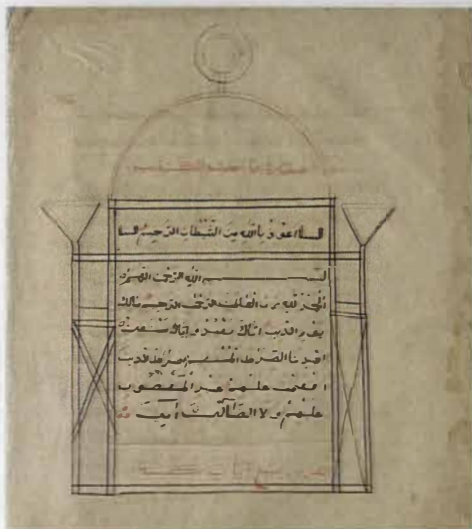 اعوذ بالله من الشيطان الرجيم
بسم الله الرحمن الرحيم
الحمد لله رب العالمين الرحمن الرحيم مالك
يوم الدين اياك نعبد و اياك نستعين
اهدنا الصراط المستقيم صراط الذين
انعمت عليهم غير المغضوب
عليهم ولا الضالين أمين